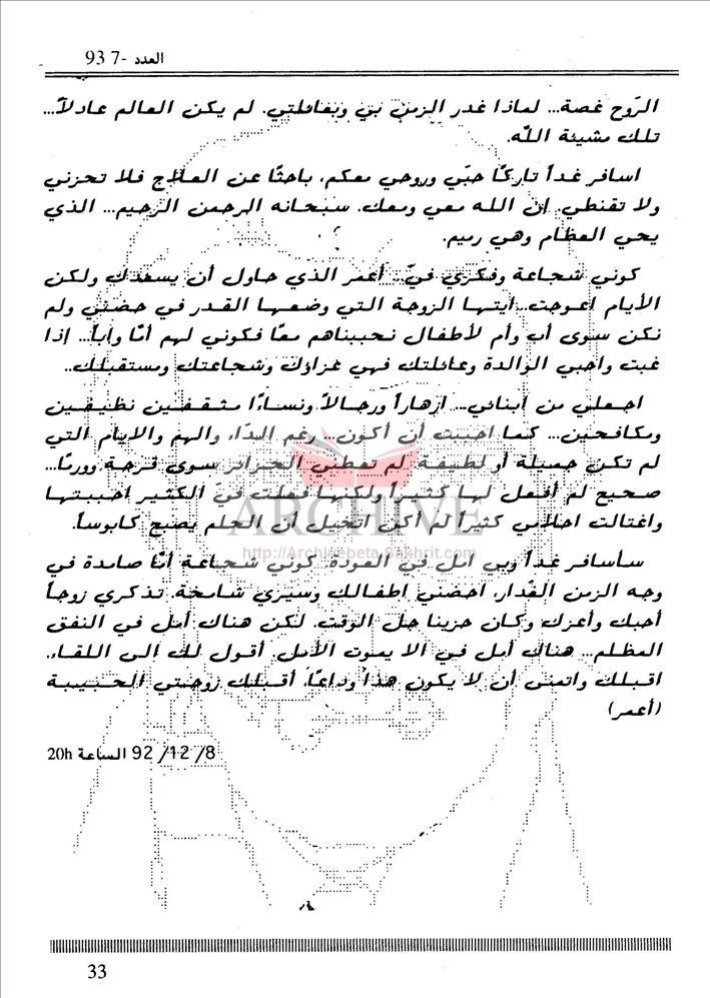 العدد -7 93
الرّوح غصة... لماذا غدر الزمن بي وبعائلتي. لم يكن العالم عادلاً...
تلك مشيئة اللّه.
اسافر غداً تاركًا حبّي وروحي معكم، باحثًا عن العلاج فلا تحزني
ولا تقنطي. إن الله معي ومعك. سبحانه الرحمن الرحيم... الذي
يحي العظام وهي رميم.
كوني شجاعة وفكري فيّ.. أعمر الذي حاول أن يسعدك ولكن
الأيام اعوجت.. أيتها الزوجة التي وضعها القدر في حضني ولم
نكن سوى أب وأم لأطفال نحبيناهم معًا فكوني لهم أمًا وأبا... إذا
غبت واحبي الوالدة وعائلتك فهي عزاؤك وشجاعتك ومستقبلك..
اجعلي من أبنائي... ازهاراً ورجالاً ونساءًا مثقفين نظيفين
ومكافحين... كما احببت أن أكون.. رغم الدّاء والهم والايام التي
لم تكن جميلة أو لطيفة. لم تعطني الجزائر سوى قرحة وورمًا...
صحيح لم أفعل لها كثيراً ولكنها فعلت فيّ الكثير احببتها
واغتالت احلامي كثيراً لم أكن اتخيل أن الحلم يصبح كابوساً.
سأسافر غداً وبي امل في العودة. كوني شجاعة أمًا صامدة في
وجه الزمن الغدار، احضني اطفالك وسيري شامخة. تذكري زوجاً
أحبك وأعزك وكان حزينا جل الوقت. لكن هناك أمل في النفق
المظلم... هناك أمل في الا يموت الأمل. أقول لك الى اللقاء.
اقبلك واتمنى أن لا يكون هذا وداعًا. أقبلك زوجتي الحبيبة
(أعمر)
8/ 12/ 92 الساعة 20h
ARCHIVE
http://Archivebeta.Sakhrit.com
33